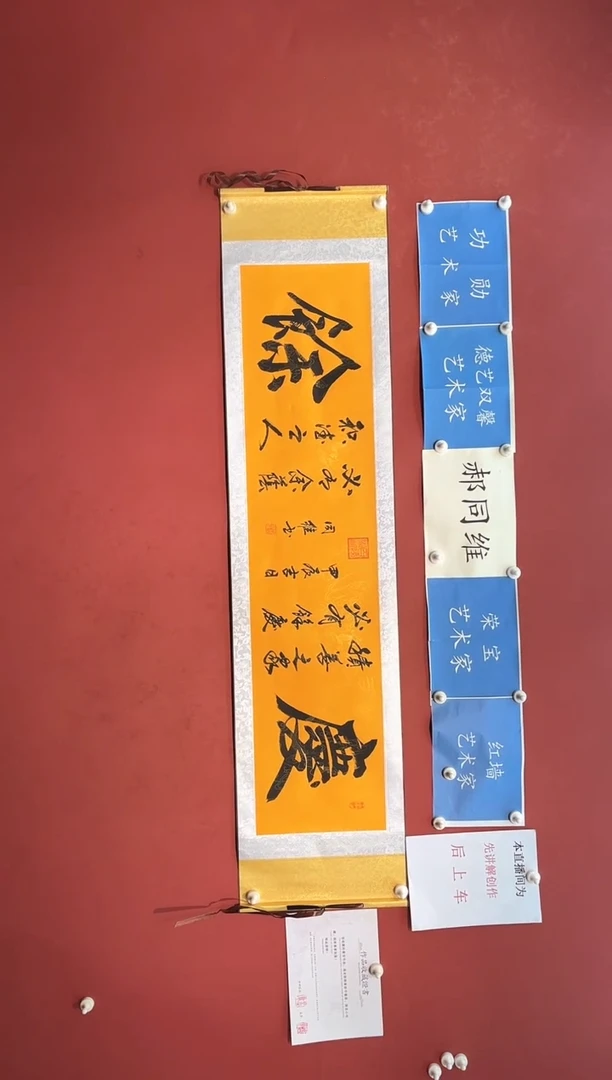 功勋
艺术家
德艺双馨
艺术家
郝同维
荣宝
艺术家
红墙
艺术家
本直播间为
先讲解创作
后上车
慶
積善之家
必有餘慶
甲辰吉日
同維书
积德之人
必有余蔭
餘
作品收藏证书